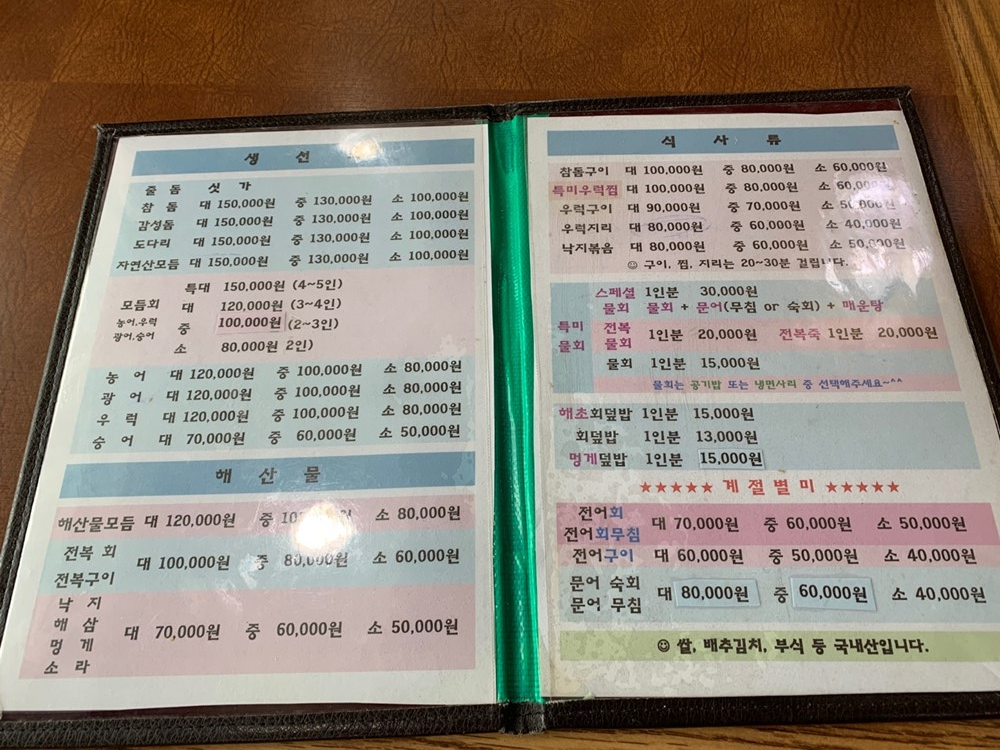 생 선
줄 돔 싯 가
참 돔 대 150,000원 중 130,000원 소 100,000원
감성돔 대 150,000원 중 130,000원 소 100,000원
도다리 대 150,000원 중 130,000원 소 100,000원
자연산모듬 대 150,000원 중 130,000원 소 100,000원
특대 150,000원 (4~5인)
모듬회 대 120,000원 (3~4인)
농어,우럭 중 100,000원 (2~3인)
광어,숭어
소 80,000원 2인)
농 어 대 120,000원 중 100,000원 소 80,000원
광 어 대 120,000원 중 100,000원 소 80,000원
우 럭 대 120,000원 중 100,000원 소 80,000원
숭 어 대 70,000원 중 60,000원 소 50,000원
해 산 물
해산물모듬 대 120,000원 중 소 80,000원
전복 회
전복구이
대 100,000원 중 80,000원 소 60,000원
낙 지
해 삼
멍 게
소 라
대 70,000원 중 60,000원 소 50,000원
식 사 류
참돔구이 대 100,000원 중 80,000원 소 60,000원
특미우럭찜 대 100,000원 중 80,000원 소 60,000원
우럭구이 대 90,000원 중 70,000원 소 50,000원
우럭지리 대 80,000원 중 60,000원 소 40,000원
낙지볶음 대 80,000원 중 60,000원 소 50,000원
☺ 구이, 찜, 지리는 20~30분 걸립니다.
특미
물회
스페셜 1인분 30,000원
물회 물회 + 문어(무침 or 숙회) + 매운탕
전복
물회
1인분 20,000원 전복죽 1인분 20,000원
물회 1인분 15,000원
물회는 공기밥 또는 냉면사리 중 선택해주세요~^^
해초회덮밥 1인분 15,000원
회덮밥 1인분 13,000원
멍게덮밥 1인분 15,000원
★★★★★ 계절별미 ★★★★★
전어회
전어회무침
대 70,000원 중 60,000원 소 50,000원
전어구이 대 60,000원 중 50,000원 소 40,000원
문어 숙회
문어 무침
대 80,000원 중 60,000원 소 40,000원
☺ 쌀, 배추김치, 부식 등 국내산입니다.